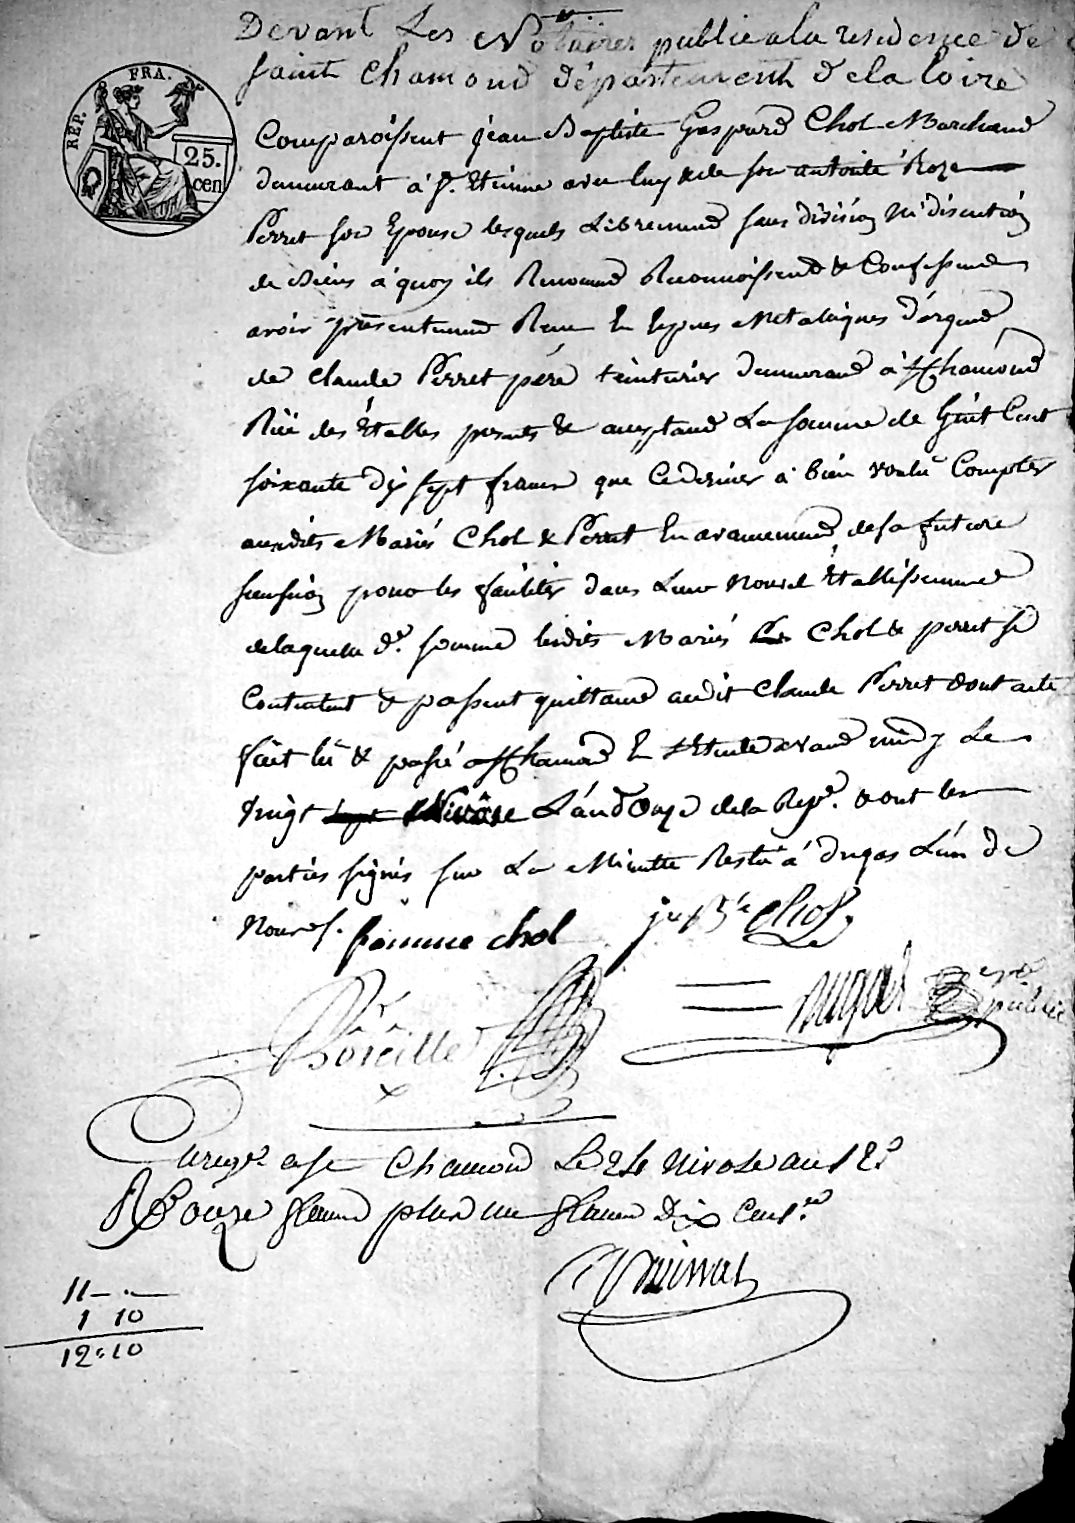 Devant Les Notaires public a la residence de
saint chamond département de la loire
REP. FRA.
25.
cen
Comparoissent jean Baptiste Gaspard Chol Marchand
demeurant à St. Etienne avec luy & de son autorité Roze
Perret son Epouse lesquels Librement sans division ni discution
de Biens à quoy ils Renoncent Reconnoissent & Confessent
avoir présentement Recu En Espèces Metaliques d'argent
de Claude Perret pére teinturier demeurant à St Chamond
Rüe des Etables present & acceptant La somme de huit Cent
soixante dix sept francs que ce dernier a bien voulu Compter
auxdits Mariés Chol & Perret En avancement de sa future
succession pour les faciliter dans Leur Nouvel Etablissement
de laquelle de. somme lesdits Mariés Chol & perret se
Contentent & passent quittance audit Claude Perret dont acte
fait lu & passé a St Chamond En Etude avant midy Le
vingt Nivôse L'an douze de la Repe. & ont les
parties signés sur La Minutte Restée à dugas L'un de
Nous
femme chol
j n Bte Chol
Boreille
Dugas
public
Enregé a St Chamond Le 24 Nivose an 12
R onze francs plus un franc Dix Cent.
11 —
1 10
12.10